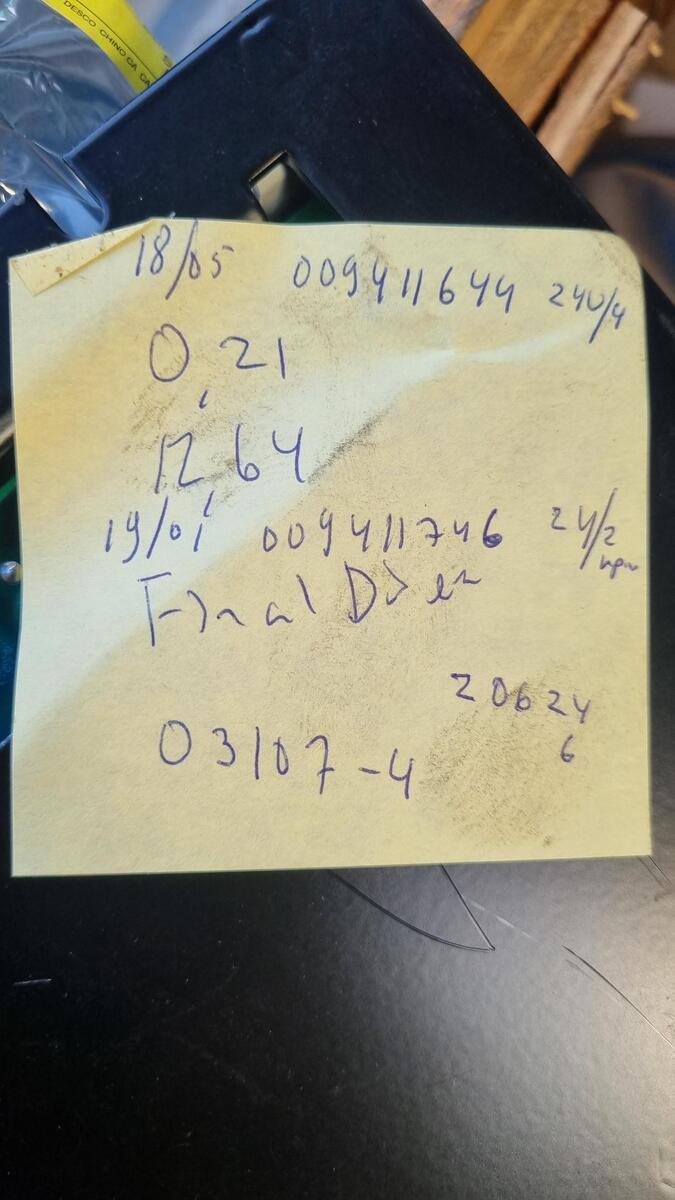 DESCO CHINO CA
18/05 009411644 240/4
0,21
12,64
19/01 009411746 24/2
Final
20624
6
03/07-4